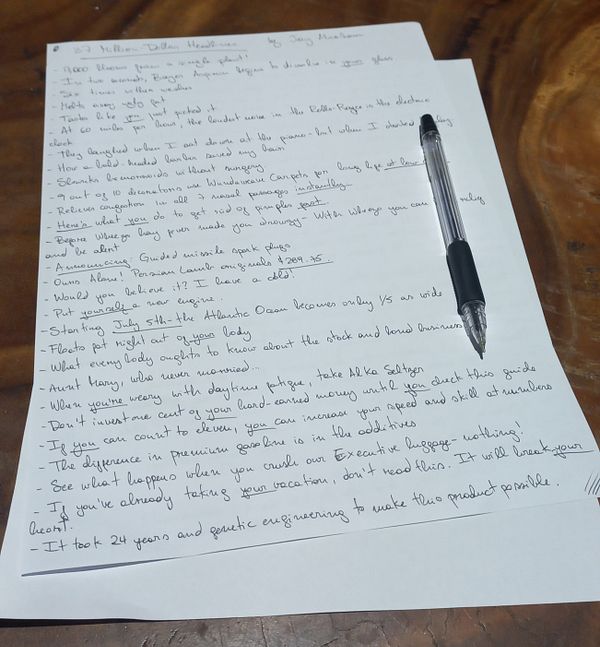 37 Million-Dollar Headlines by Jay
- 9,000 blooms from a single plant!
- In two seconds, Bayer Aspirin begins to dissolve in your glass
- Six times whiter washes
- Melts away ugly fat
- Tastes like you just picked it
- At 60 miles per hour, the loudest noise in the Rolls-Royce is the electric
clock
- They laughed when I sat down at the piano - but when I started
- How a bald-headed barber saved my hair
- Shrinks hemorrhoids without surgery
- 9 out of 10 decorators use Wundaweave Carpets for long life at low
- Relieves congestion in all 7 nasal passages instantly
- Here's what you do to get rid of pimples fast
- Before Wheeze hay fever made you drowsy - With Wheeze you can
and be alert
- Announcing: Guided missile spark plugs
- Ouns Alone! Persian Lamb originals $289.75
- Would you believe it? I have a cold!
- Put yourself a new engine.
- Starting July 5th - the Atlantic Ocean becomes only 1/5 as wide
- Floats fat right out of your body
- What everybody oughts to know about the stock and bond business
- Aunt Mary, who never married...
- When you're weary with daytime fatigue, take Alka Seltzer
- Don't invest one cent of your hard-earned money until you check this guide
- If you can count to eleven, you can increase your speed and skill at numbers
- The difference in premium gasoline is in the additives
- See what happens when you crush our Executive luggage - nothing!
- If you've already taking your vacation, don't read this. It will break your
heart.
- It took 24 years and genetic engineering to make this product possible.